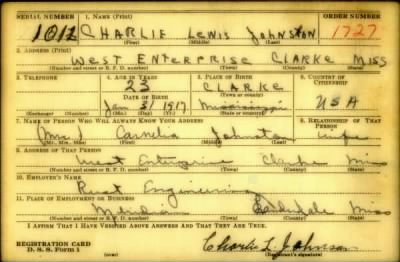 SERIAL NUMBER 1. NAME (Print) ORDER NUMBER
1012 CHARLIE LEWIS JOHNSTON 1727
(First) (Middle) (Last)
2. ADDRESS (Print)
WEST ENTERPRISE CLARKE MISS
(Number and street or R. F. D. number) (Town) (County) (State)
3. TELEPHONE 4. AGE IN YEARS 5. PLACE OF BIRTH 6. COUNTRY OF CITIZENSHIP
23 CLARKE
DATE OF BIRTH (Town or county)
Jan 31 1917 Mississippi USA
(Exchange) (Number) (Mo.) (Day) (Yr.) (State or country)
7. NAME OF PERSON WHO WILL ALWAYS KNOW YOUR ADDRESS 8. RELATIONSHIP OF THAT PERSON
Mrs Johnston wife
(Mr., Mrs., Miss) (First) (Middle) (Last)
9. ADDRESS OF THAT PERSON
West Enterprise Clarke Miss
(Number and street or R. F. D. number) (Town) (County) (State)
10. EMPLOYER'S NAME
Rust Engineering
11. PLACE OF EMPLOYMENT OR BUSINESS
Meridian Lauderdale Miss
(Number and street or R. F. D. number) (Town) (County) (State)
I AFFIRM THAT I HAVE VERIFIED ABOVE ANSWERS AND THAT THEY ARE TRUE.
REGISTRATION CARD
D. S. S. Form 1 (over) Charlie L. Johnson
(Registrant's signature)